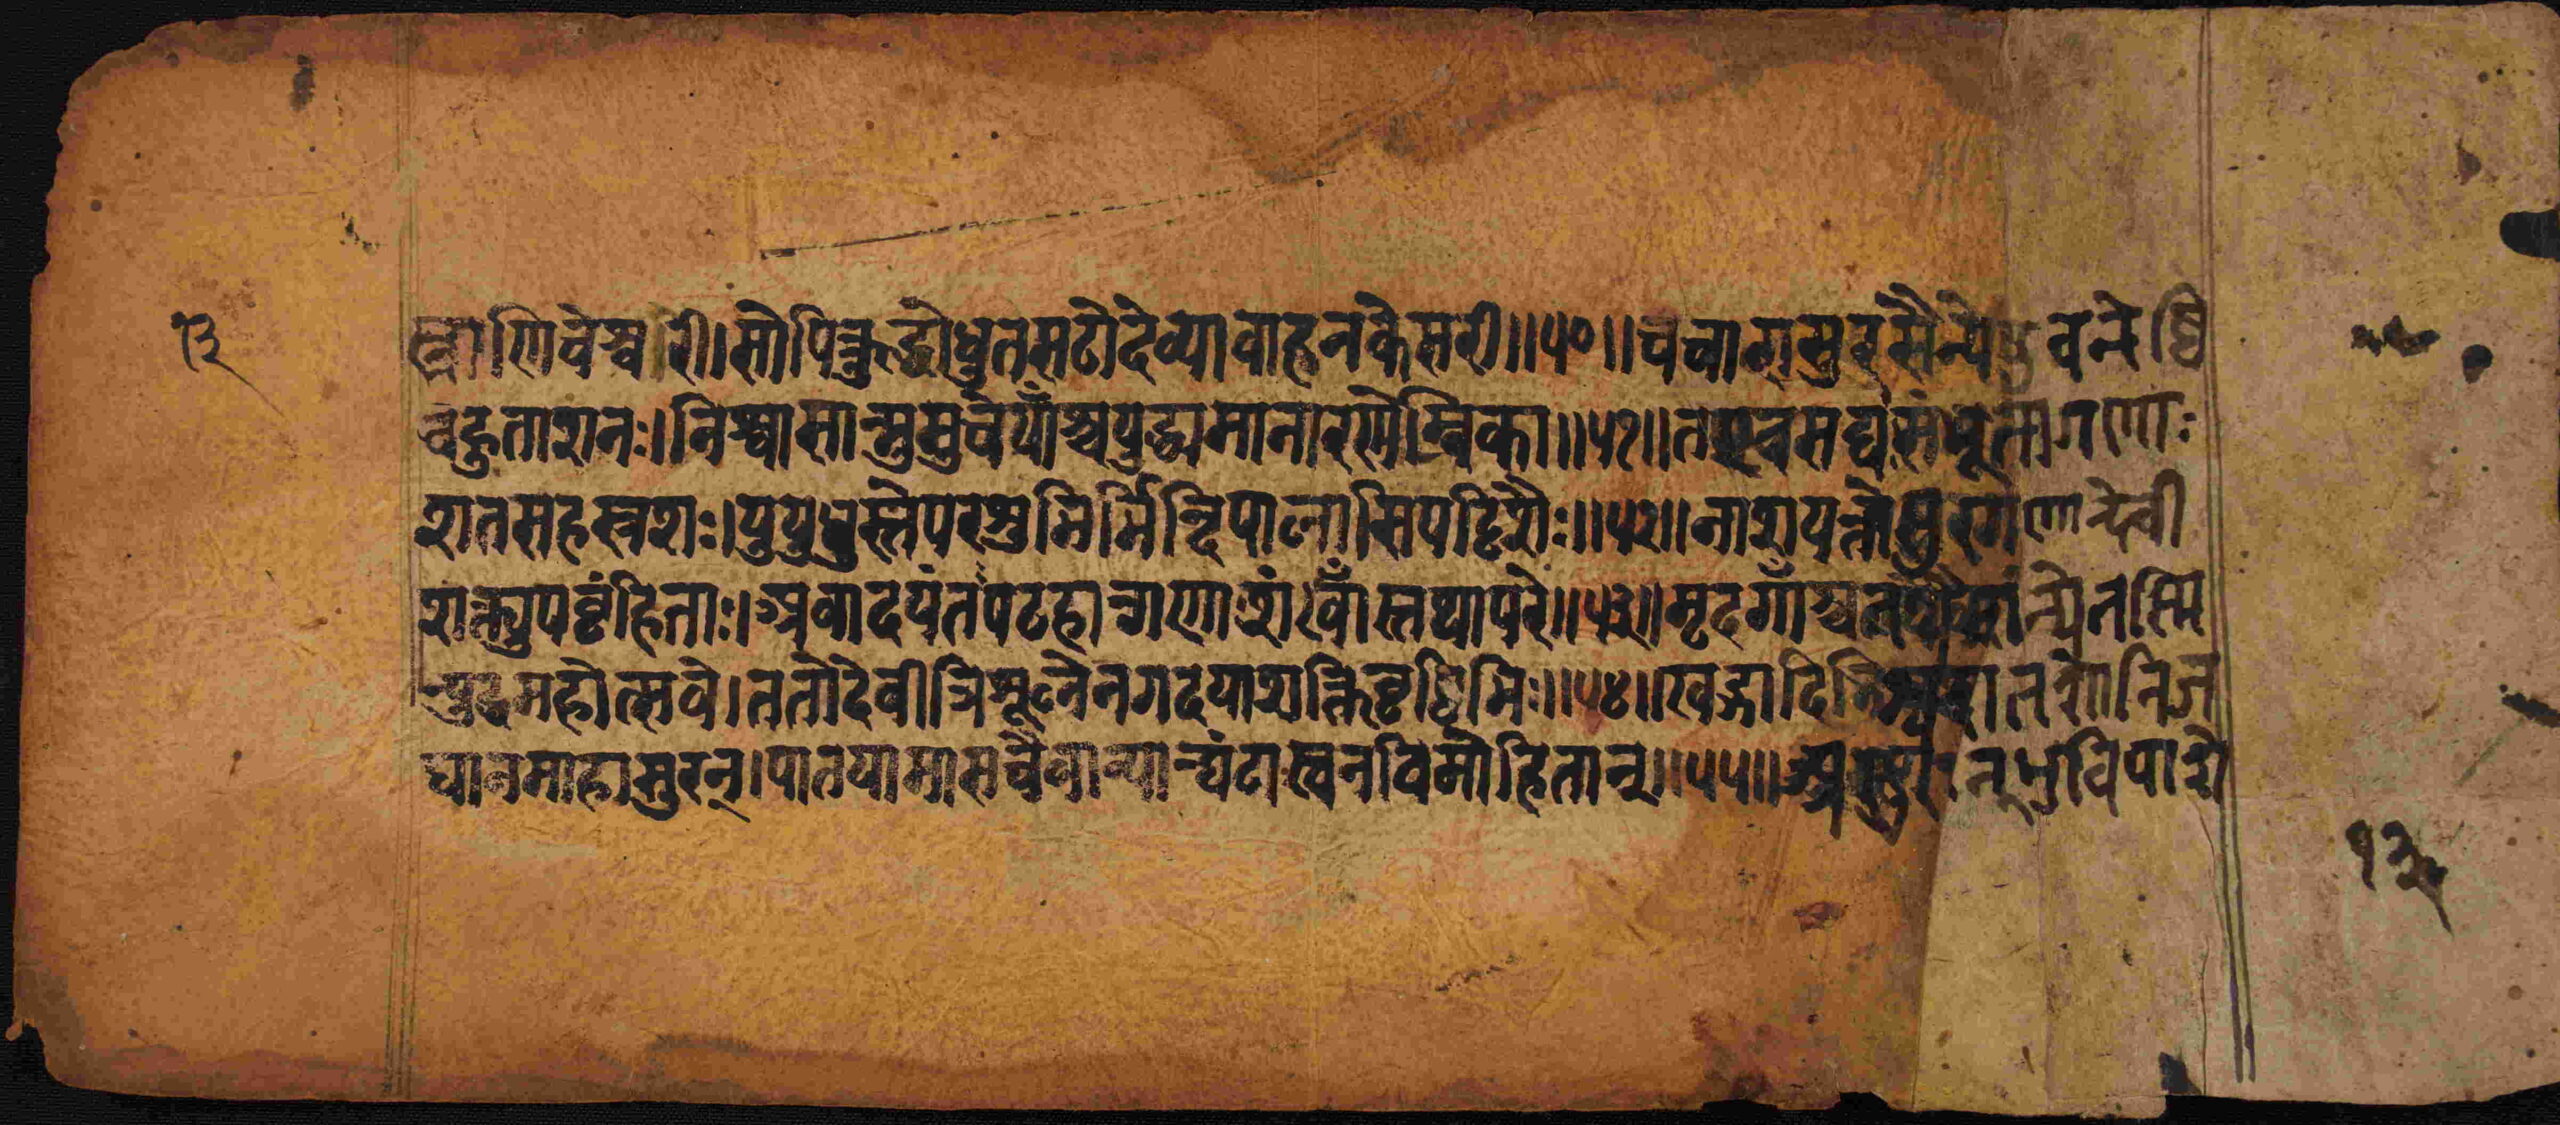 १३
स्त्राणिचेश्वरी।सोपिक्रुद्धोधुतसटोदेव्यावाहनकेसरी॥५०॥चचारासुरसैन्येषुवनेष्वि
वहुताशनः।निश्वासान्मुमुचेयाँश्चयुद्ध्यमानारणेम्बिका॥५१॥तएवसद्यःसंभूतागणाः
शतसहस्त्रशः।युयुधुस्तेपरशुभिर्भिन्दिपालासिपट्टिशैः॥५२॥नाशयन्तोसुरगणान्देवी
शक्त्युपवृंहिताः।अवादयंतपटहान्गणाःशंखाँस्तथापरे॥५३॥मृदगाँश्चतथैवान्येतस्मि
न्युद्धमहोत्सवे।ततोदेवीत्रिशूलेनगदयाशक्तिवृष्टिभिः॥५४॥खड्गादिभिश्चशतशोनिज
घानमाहासुरन्।पातयामासचैवान्यान्घंटास्वनविमोहितान्॥५५॥असुरान्भुविपाशे
१३